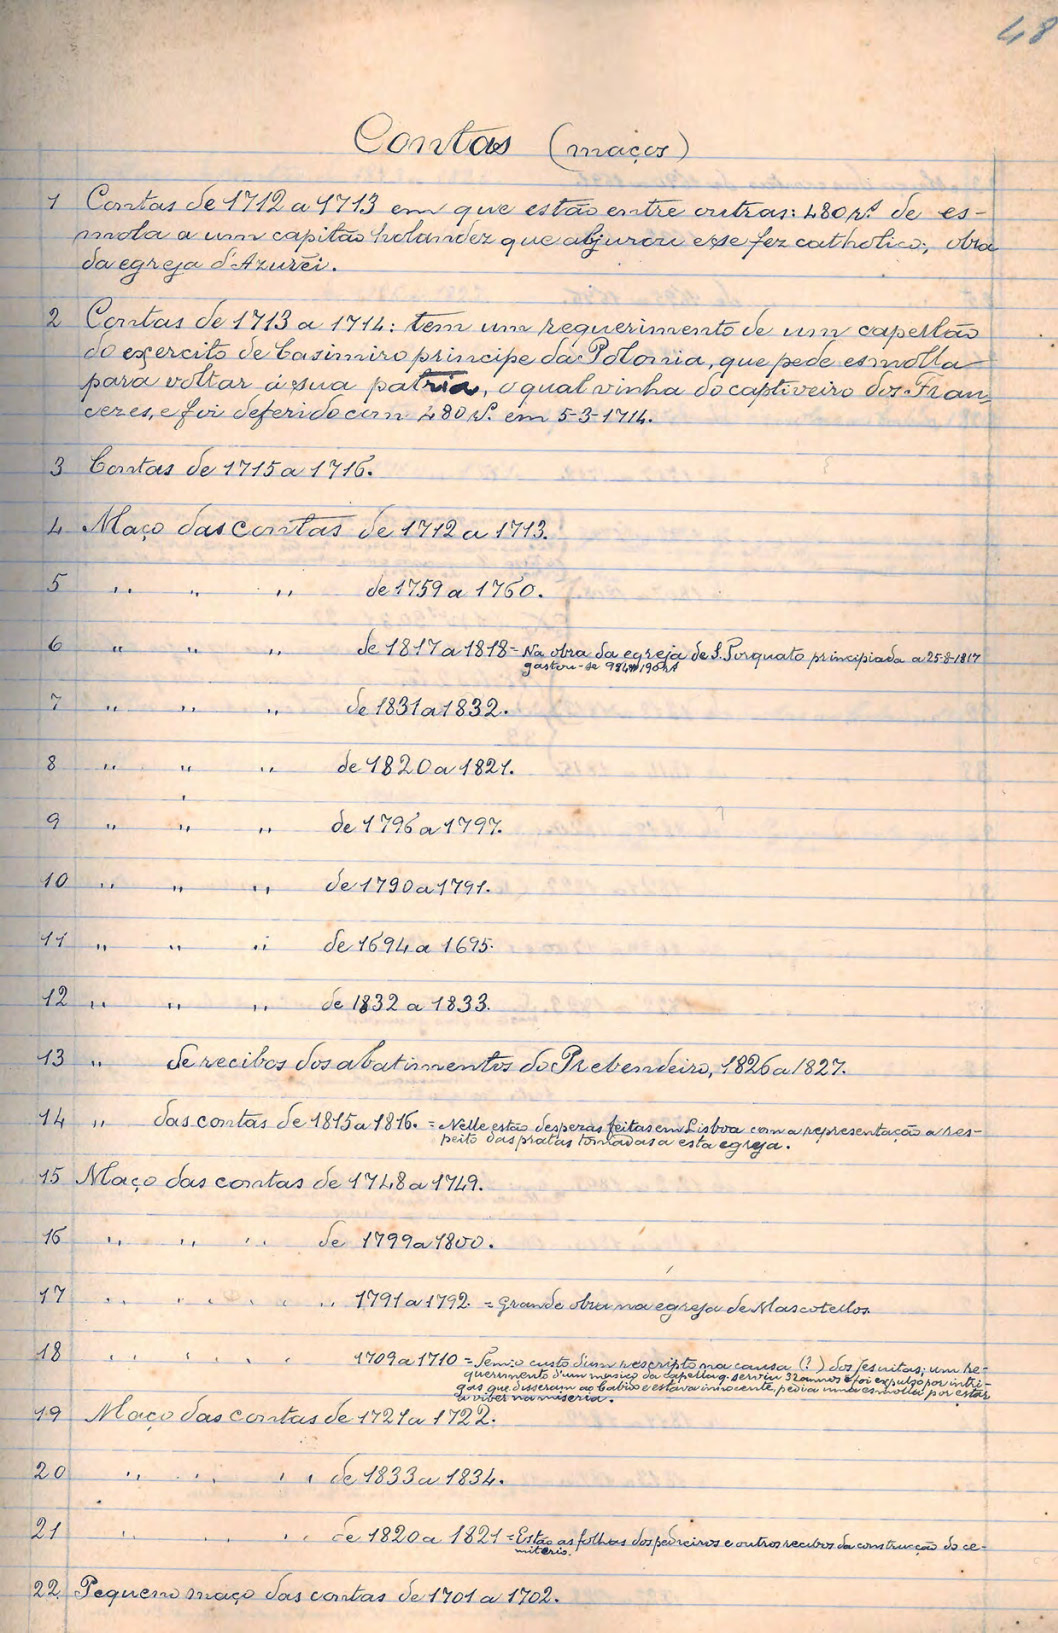 48
Contas (maços)
1 Contas de 1712 a 1713 em que estão entre outras: 480 rs. de es-
mola a um capitão holandez que abjurou e se fez catholico; obra
da egreja d'Azurêi.
2 Contas de 1713 a 1714: tem um requerimento de um capellão
do exercito de Casimiro principe da Polonia, que pede esmolla
para voltar á sua patria, o qual vinha do captiveiro dos Fran-
cezes, e foi deferido com 480 rs. em 5-3-1714.
3 Contas de 1715 a 1716.
4 Maço das contas de 1712 a 1713.
5 " " " de 1759 a 1760.
6 " " " de 1817 a 1818 = Na obra da egreja de S. Torquato principiada a 25-8-1817
gastou-se
7 " " " de 1831 a 1832.
8 " " " de 1820 a 1821.
9 " " " de 1796 a 1797.
10 " " " de 1790 a 1791.
11 " " " de 1694 a 1695.
12 " " " de 1832 a 1833.
13 " de recibos dos abatimentos do Prebendeiro, 1826 a 1827.
14 " das contas de 1815 a 1816. = Nelle estão despezas feitas em Lisboa com a representação a res-
peito das pratas tomadas a esta egreja.
15 Maço das contas de 1748 a 1749.
16 " " " de 1799 a 1800.
17 " " " " " " 1791 a 1792. = Grande obra na egreja de Mascotellos.
18 " " " " " 1709 a 1710 = Tem: o custo d'um rescripto na causa (?) dos Jesuitas; um re-
querimento d'um musico da capella q. serviu 32 annos e foi expulso por intri-
gas que disseram ao Cabido e estava innocente, pedia uma esmolla por estar
a viver na miseria.
19 Maço das contas de 1721 a 1722.
20 " " " " de 1833 a 1834.
21 " " " " de 1820 a 1821 = Estão as folhas dos pedreiros e outros recibos da construcção do ce-
miterio.
22. Pequeno maço das contas de 1701 a 1702.